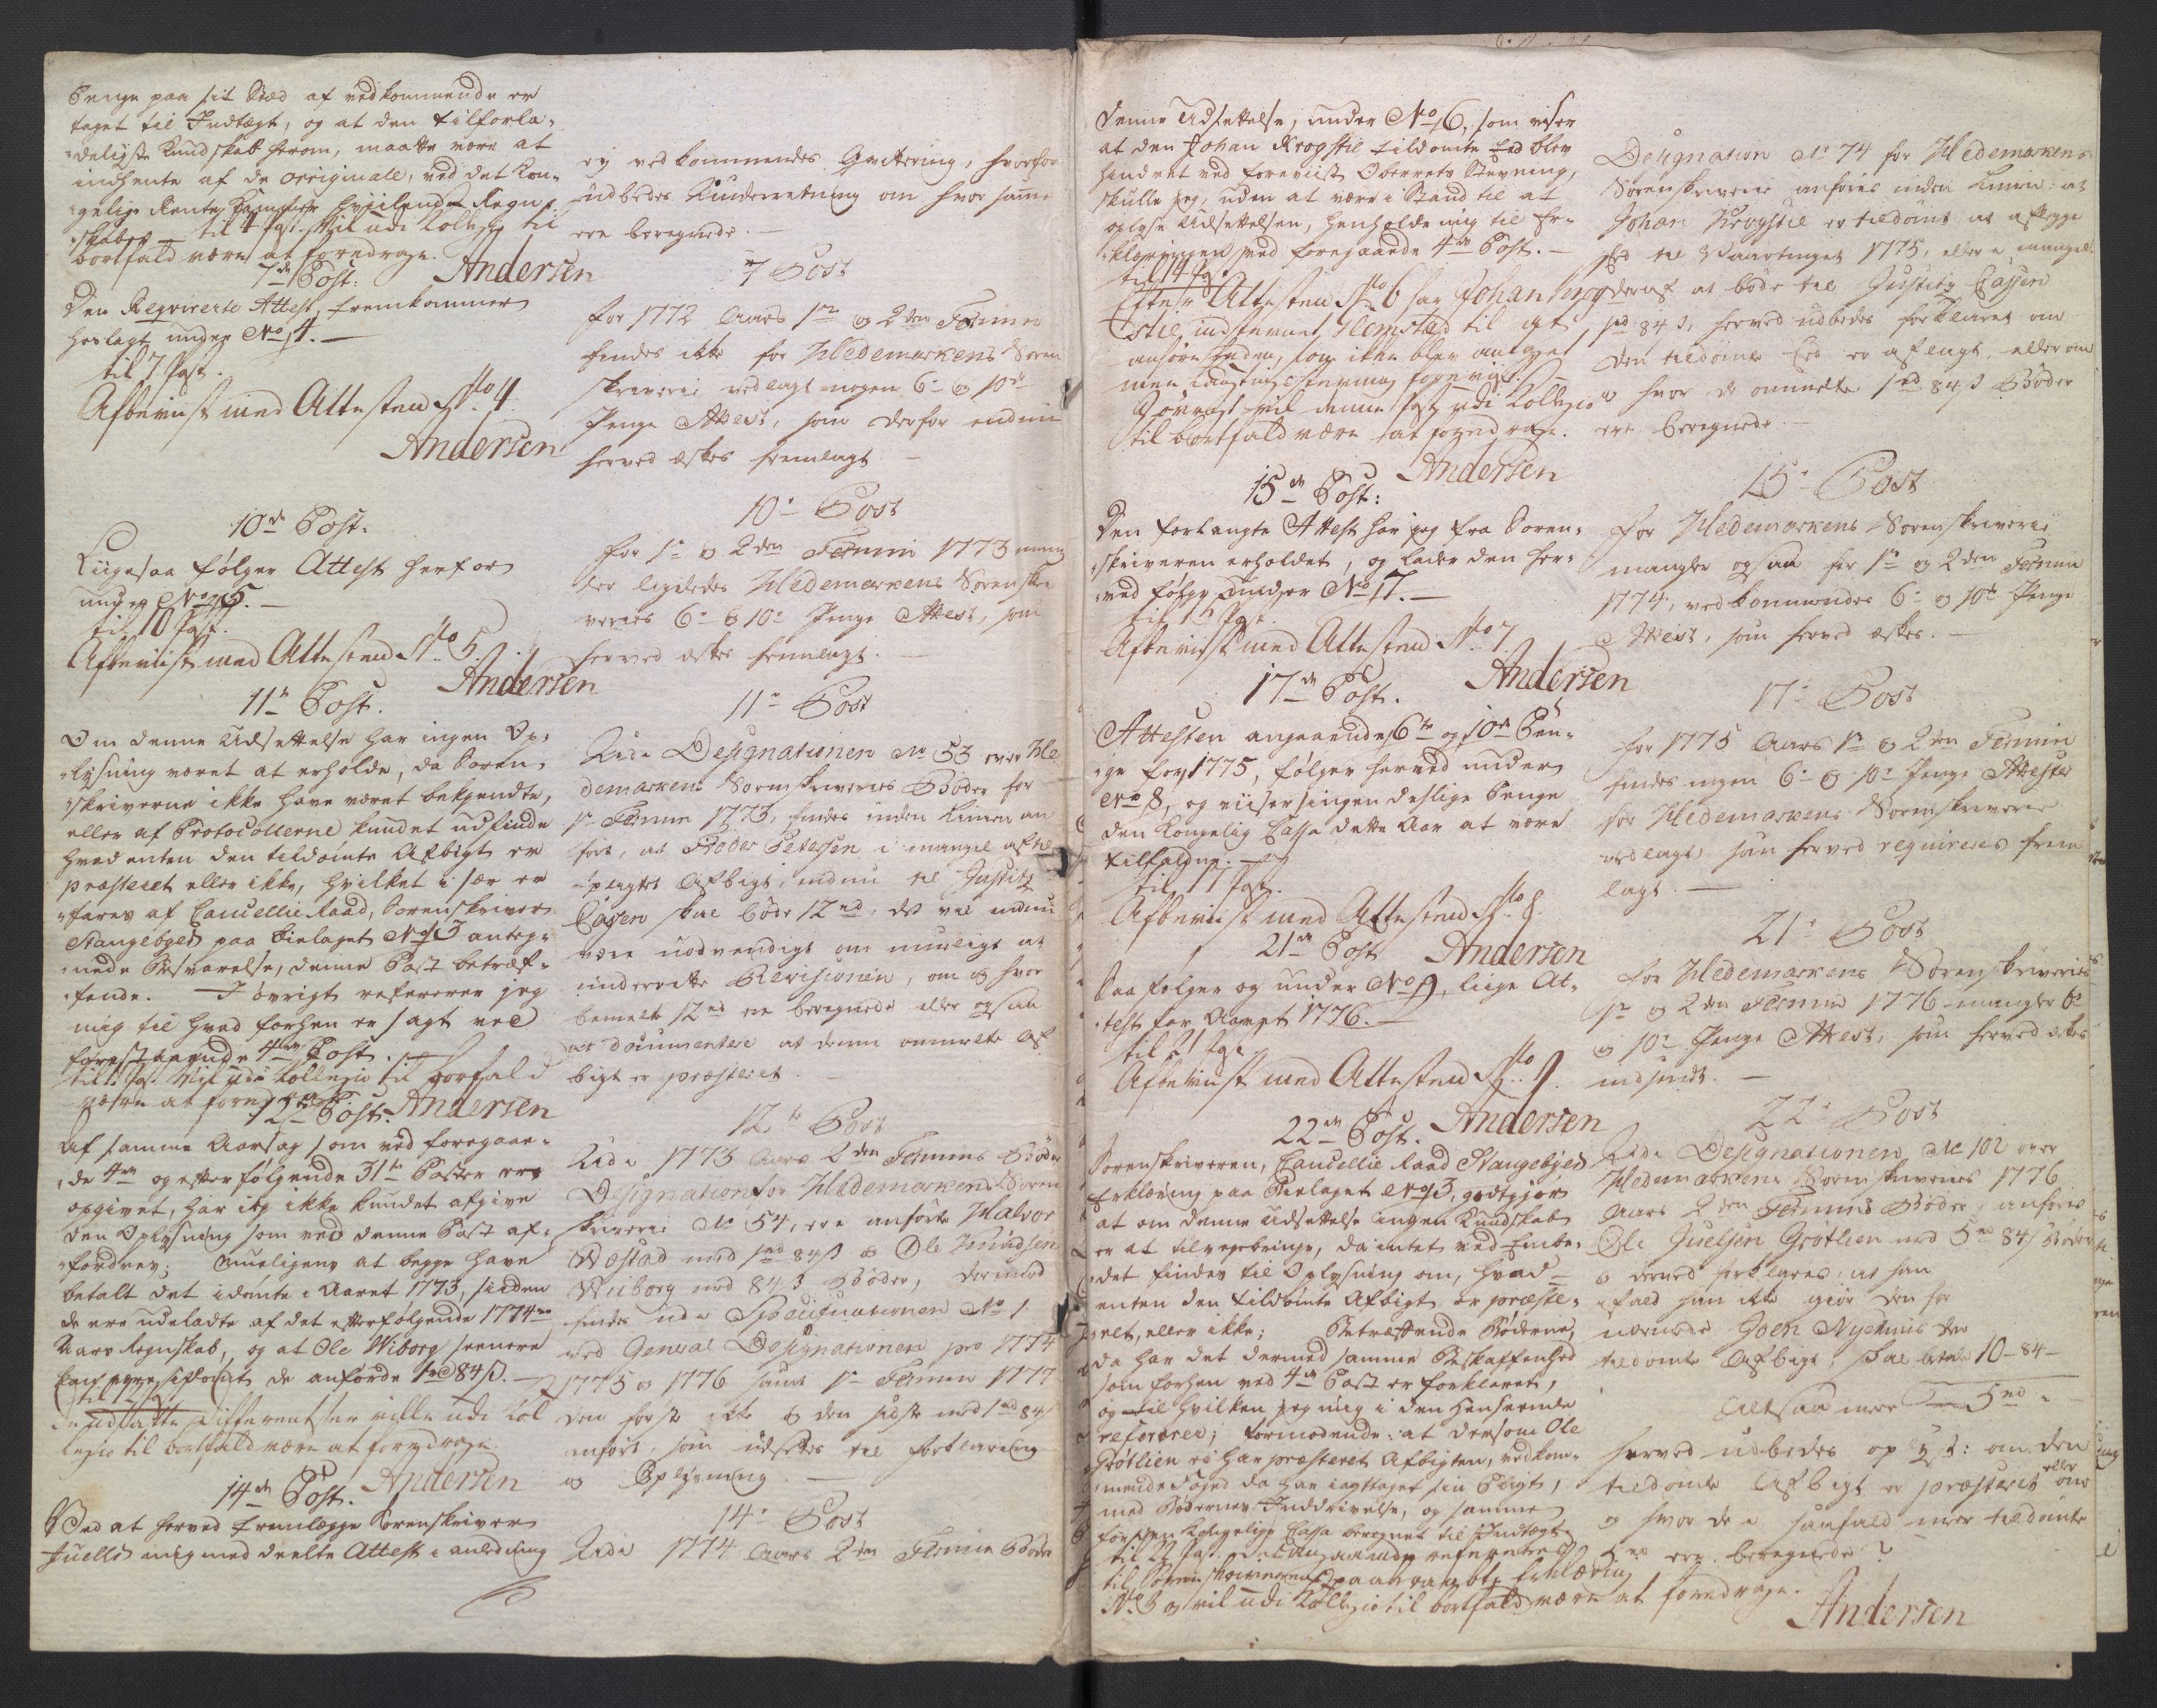 Penge paa sit Stæd af vedkommende er
taget til Indtægt, og at den tilforla-
deligste Kundskab herom, maatte være at
indhente af de originale, ved det Kon-
gelige Rente Kammer hvilende Regn-
skaber. til 4 Post. Vil udi Collegio til
bortfald være at foredrage.
7de Post: Andersen
Den Reqvirerte Attest, fremkommer
herlagt under No 4.
til 7 Post.
Afbeviist med Attesten No 4.
Andersen
10de Post.
Liigesaa følger Attest herfor
under No 5.
til 10 Post.
Afbeviist med Attesten No 5.
Andersen
11te Post.
Om denne Udsættelse har ingen Op-
lysning været at erholde, da Soren-
skriverne ikke have været bekjendte,
eller af Protocollerne kundet udfinde
hvad enten den tildømte Afbigt er
præsteret eller ikke, hvilket i sær er-
fares af Cancellie Raad, Sorenskriver
Stangebyes paa bielaget No 3 anteg-
nede Besvarelse, denne Post betræf-
fende. I øvrigt refererer jeg
mig til hvad forhen er sagt ved
forestaaende 4de Post.
til 11 Post. Vil udi Collegio til bortfald
være at foredrage.
12te Post. Andersen
Af samme Aarsag som ved foregaaen-
de 4de og efterfølgende 31te Poster er
opgivet, har jeg ikke kundet afgive
den Oplysning som ved denne Post af-
fordres; Mueligens at begge have
betalt det idømte i Aaret 1773, siden
de ere udeladte af det efterfølgende 1774de
Aars Regnskab, og at Ole Wiborg senere
de anførde 1rd 84 ß.
til 12
De udsatte Differentser ville udi Col
legio til bortfald være at foredrage.
14de Post. Andersen
Ved at herved fremlægge Sorenskriver
Juells mig meddeelte Attest i anledning

ey vedkommendes Qvittering, hvorfor
udbedes Underretning om hvor samme
ere beregnede.
7 Post
For 1772 Aars 1te og 2den Termin
findes ikke for Hedemarkens Soren
skriverie vedlagt nogen 6te og 10de
Penge Attest, som derfor endnu
herved æskes fremlagt
10de Post
For 1te og 2den Termin 1773 mang
ler ligeledes Hedemarkens Sorenskri
veries 6te og 10de Penge Attest, som
herved æskes fremlagt.
11te Post
Udi Designationen No 53 over He
demarkens Sorenskriveries Bøder for
1te Termin 1773, findes inden Linien an
ført, at Peder Petersen i mangel af til
plagtet Afbigt, endnu til Justitz
Cassen skal bøde 12 rd, det vil endnu
være nødvendigt om mueligt at
underrette Revisionen, om og hvor
bemelte 12 rd ere beregnede eller ogsaa
at documentere at denne ommelte Af
bigt er præsteret.
12te Post
Udi 1773 Aars 2den Termins Bøder
Designation for Hedemarkens Soren
skriverie No 54, ere anførte Halvor
Wæstad med 1rd 84 ß og Ole Knudsen
Wiiborg med 84 ß Bøder, dermed
findes udi Specificationen No 1
ved General Designationen pro 1774
1775 og 1776 samt 1te Termin 1777
den første ikke og den sidste med 1rd 84 ß
anført, som udsettes til forklaring
og Oplysning.
14de Post
Udi 1774 Aars 2den Termin Bøder

denne Udsettelse, under No 6, som viser
at den Johan Krogstie tildømte Eed blev
hindret ved foreviist Oberrets Stevning,
skulle jeg, uden at være i Stand til at
oplyse Udsettelsen, henholde mig til Er-
klæringen ved foregaaende 4de Post.
til 14 Post.
Efter Attesten No 6 har Johan Krog
stie, indfunnet Hemstad til at
anføre Eeden, som ikke blev antaget
men Laugtings stevning foreviist.
Iøvrigt vil denne Post udi Collegio
til bortfald være at foredrage.
Andersen
15de Post:
Den forlangte Attest har jeg fra Soren-
skriveren erholdet, og lader den her-
ved følge under No 7.
til 15 Post.
Afbeviist med Attesten No 7.
17de Post. Andersen
Attesten angaaende 6te og 10de Pen-
ge for 1775, følger herved under
No 8, og viiser ingen deslige Penge
den Kongelig Cassa dette Aar at være
tilfalden.
til 17 Post.
Afbeviist med Attesten No 8.
21de Post Andersen
Saa følger og under No 9, liige At-
test for Aaret 1776.
til 21 Post
Afbeviist med Attesten No 9.
22de Post. Andersen
Sorenskriveren, Cancellie Raad Stangebyes
Erklæring paa Bielaget No 3, godtgjør
at om denne Udsættelse ingen Kundskab
er at tilvejebringe, da intet ved Embe-
det findes til Oplysning om, hvad-
enten den tildømte Afbigt er præste-
ret, eller ikke; Betræffende Bøderne,
da har det dermed samme Beskaffenhed
som forhen ved 4de Post er forklaret,
og til hvilken jeg mig i den henseende
refererer; formodende: at dersom Ole
Grøtlien ei har præsteret Afbigten, vedkom-
mende Foged da har iagttaget sin Pligt,
med Bødernes Inddrivelse, og samme
for den Kongelige Cassa beregnet til Indtægt.
til 22 Post. refereres
til Sorenskriverens paategnede Erklæring
No 3 og vil udi Collegio til bortfald være at foredrage.
Andersen

Designation No 74 for Hedemarkens
Sorenskriverie anføres inden Linien: at
Johan Krogstie er tildømt at aflegge
Eed til Vaartinget 1775, eller i mangel
deraf at bøde til Justitz Cassen
1rd 84 ß, herved udbedes forklaret om
den tildømte Eed er aflagt, eller om
og hvor de ommelte 1rd 84 ß Bøder
ere beregnede.
15de Post
For Hedemarkens Sorenskriverie
mangler ogsaa for 1te og 2den Termin
1774, vedkommendes 6te og 10de Penge
Attest, som herved æskes.
17de Post
For 1775 Aars 1te og 2den Termin
findes ingen 6te og 10de Penge Attester
for Hedemarkens Sorenskriverie
vedlagt, som herved reqvireres frem
lagt.
21de Post
For Hedemarkens Sorenskriveries
1te og 2den Termin 1776 mangler 6te
og 10de Penge Attest, som herved æskes
indsendt.
22de Post
Udi Designationen No 102 over
Hedemarkens Sorenskriveries 1776
Aars 2den Termins Bøder, anføres
Ole Juelsen Grøtlien med 5rd 84 ß Bøder
og derved forklares, at han
ifald han ikke giør den for
nærmede Joen Nyehuus den
tildømte Afbigt, skal betale 10-84-
Altsaa meere 5rd-
herved udbedes oplyst: om den
tildømte Afbigt er præsteret eller om
og hvor de i saafald meer tildømte
5rd ere beregnede?